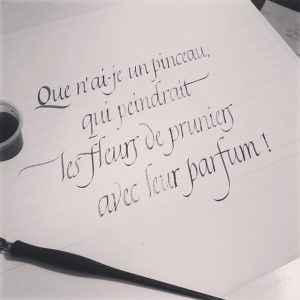 Que n'ai-je un pinceau,
qui peindrait
les fleurs de pruniers
avec leur parfum !